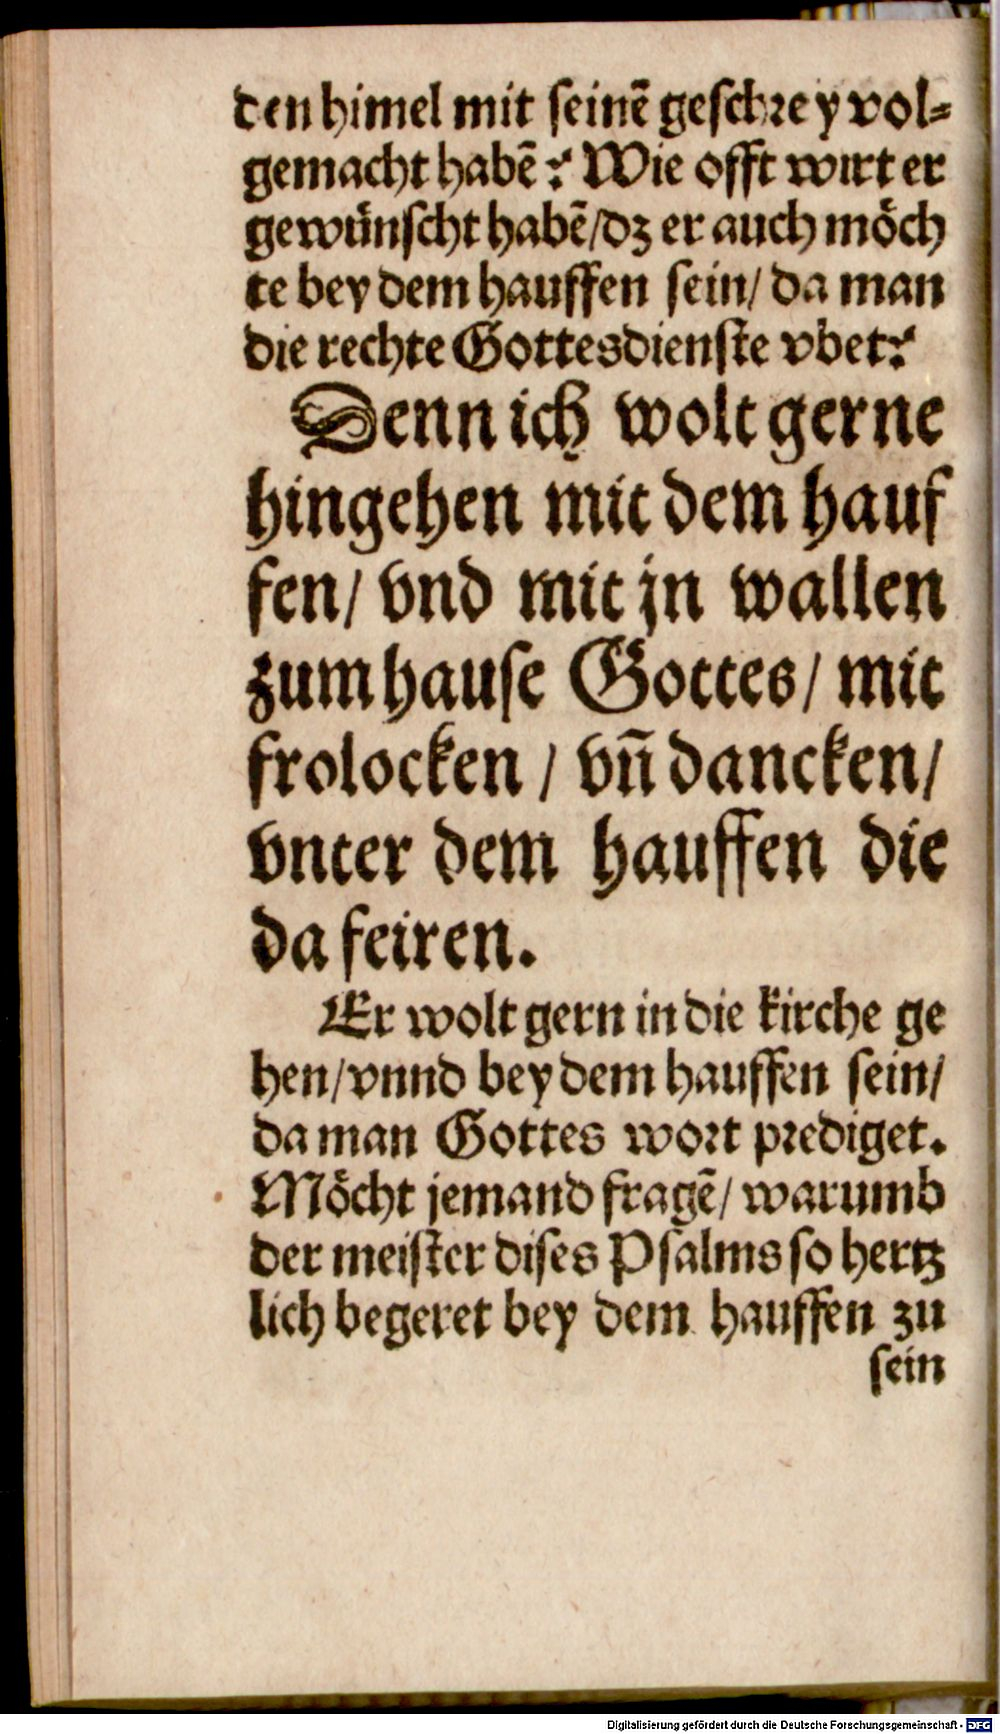 den himel mit seinē geschrey vol=
gemacht habē? Wie offt wirt er
gewünscht habē/dz er auch möch
te bey dem hauffen sein/ da man
die rechte Gottesdienste vbet?
Denn ich wolt gerne
hingehen mit dem hauf
fen/ vnd mit jn wallen
zum hause Gottes/ mit
frolocken / vñ dancken/
vnter dem hauffen die
da feiren.
Er wolt gern in die kirche ge
hen/vnnd bey dem hauffen sein/
da man Gottes wort prediget.
Möcht jemand fragē/ warumb
der meister dises Psalms so hertz
lich begeret bey dem hauffen zu
sein
Digitalisierung gefördert durch die Deutsche Forschungsgemeinschaft - DFG